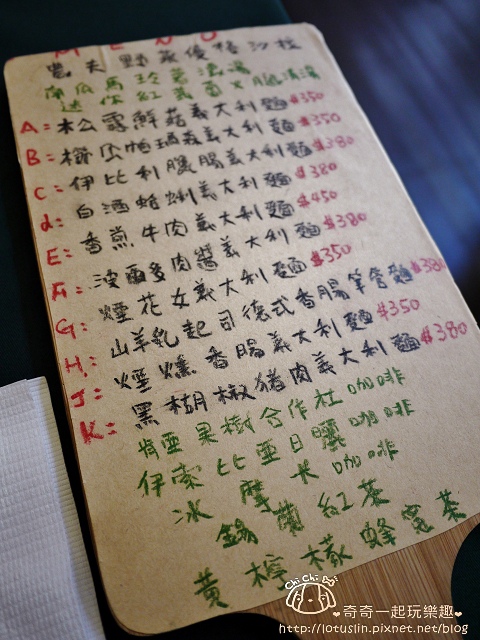 MENU
農夫野蔬優格沙拉
南瓜馬玲薯濃湯
迷你紅氣面 X 腿清湯
A: 松公露鮮菇義大利麵 $350
B: 櫛瓜帕瑪森義大利麵 $350
C: 伊比利臘腸義大利麵 $380
d: 白酒蛤蜊義大利麵 $380
E: 香煎牛肉義大利麵 $450
F: 波爾多肉醬義大利麵 $380
G: 煙花女義大利麵 $350
H: 山羊乳起司德式香腸筆管麵 $380
J: 煙燻香腸義大利麵 $350
K: 黑胡椒猪肉義大利麵 $380
肯亞果樹合作社咖啡
伊索比亞日曬咖啡
冰摩卡咖啡
錫蘭紅茶
黃檸檬蜂蜜茶
Chi Chi Bo!
奇奇一起玩樂趣
http://lotuslin.pixnet.net/blog